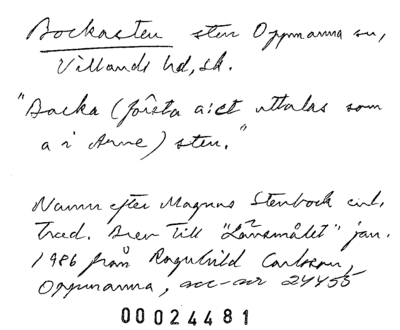 Bockasten sten Oppmanna sn,
Villands hd, sk.
"Båcka (första a:et uttalas som
a i Arne) sten."
Namn efter Magnus Stenbock enl.
trad. Brev till "Länsmålet" jan.
1986 från Ragnhild Carlsson,
Oppmanna, acc-nr 24455
00024481